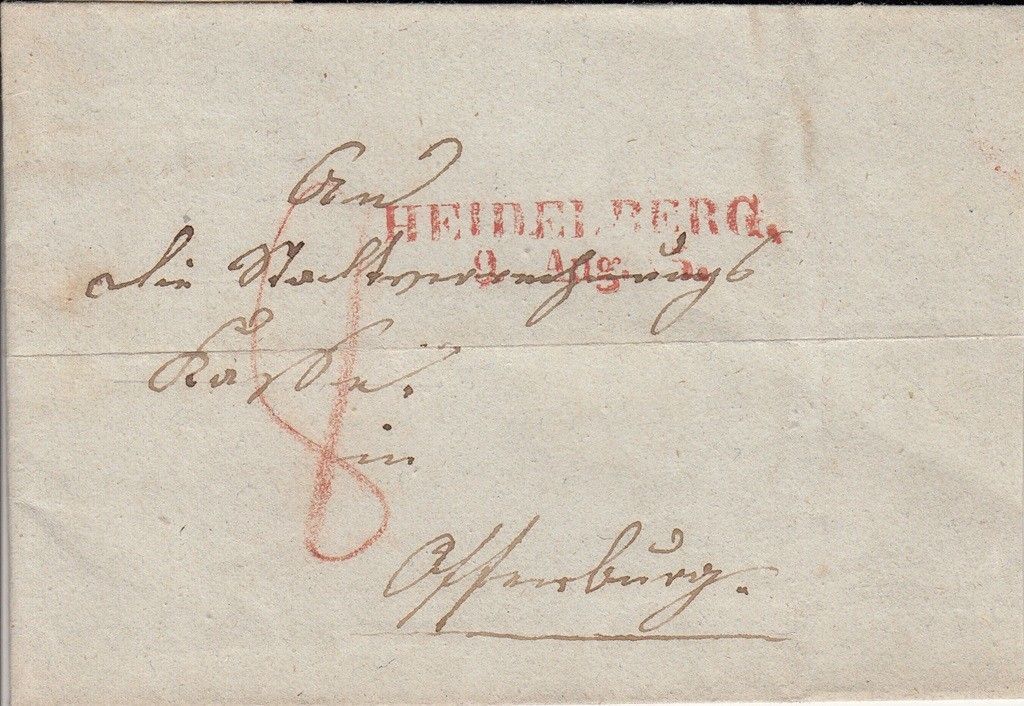 An
HEIDELBERG.
9 Aug.
die Stadtverrechnungs
Kasse.
in
8
Offenburg.